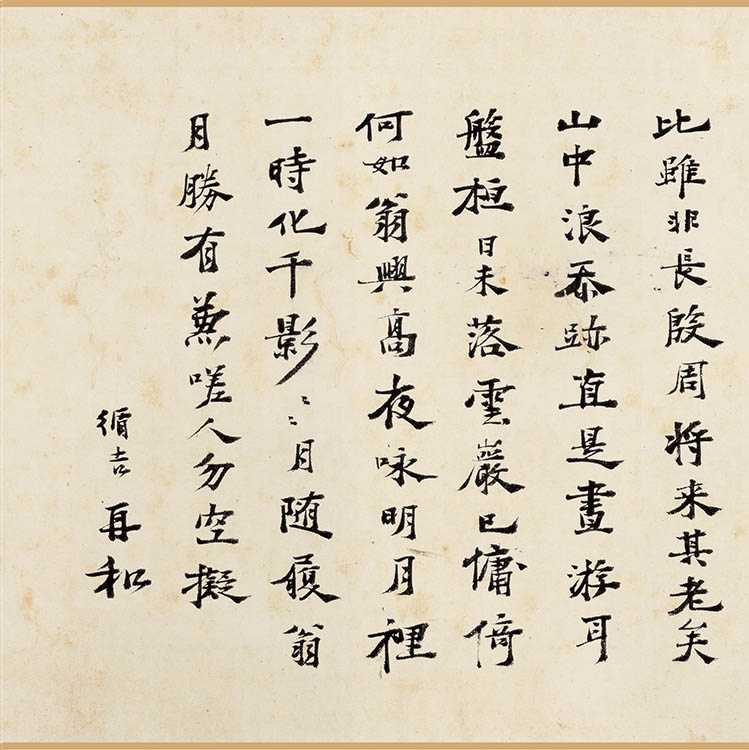 比雖非長殷周将来其老矣
山中浪吞跡直是晝游耳
盤桓日未落雲巖已慵倚
何如翁興高夜咏明月裡
一時化千影〻〻月随履翁
月勝有兼嗟人勿空擬
循吉再和